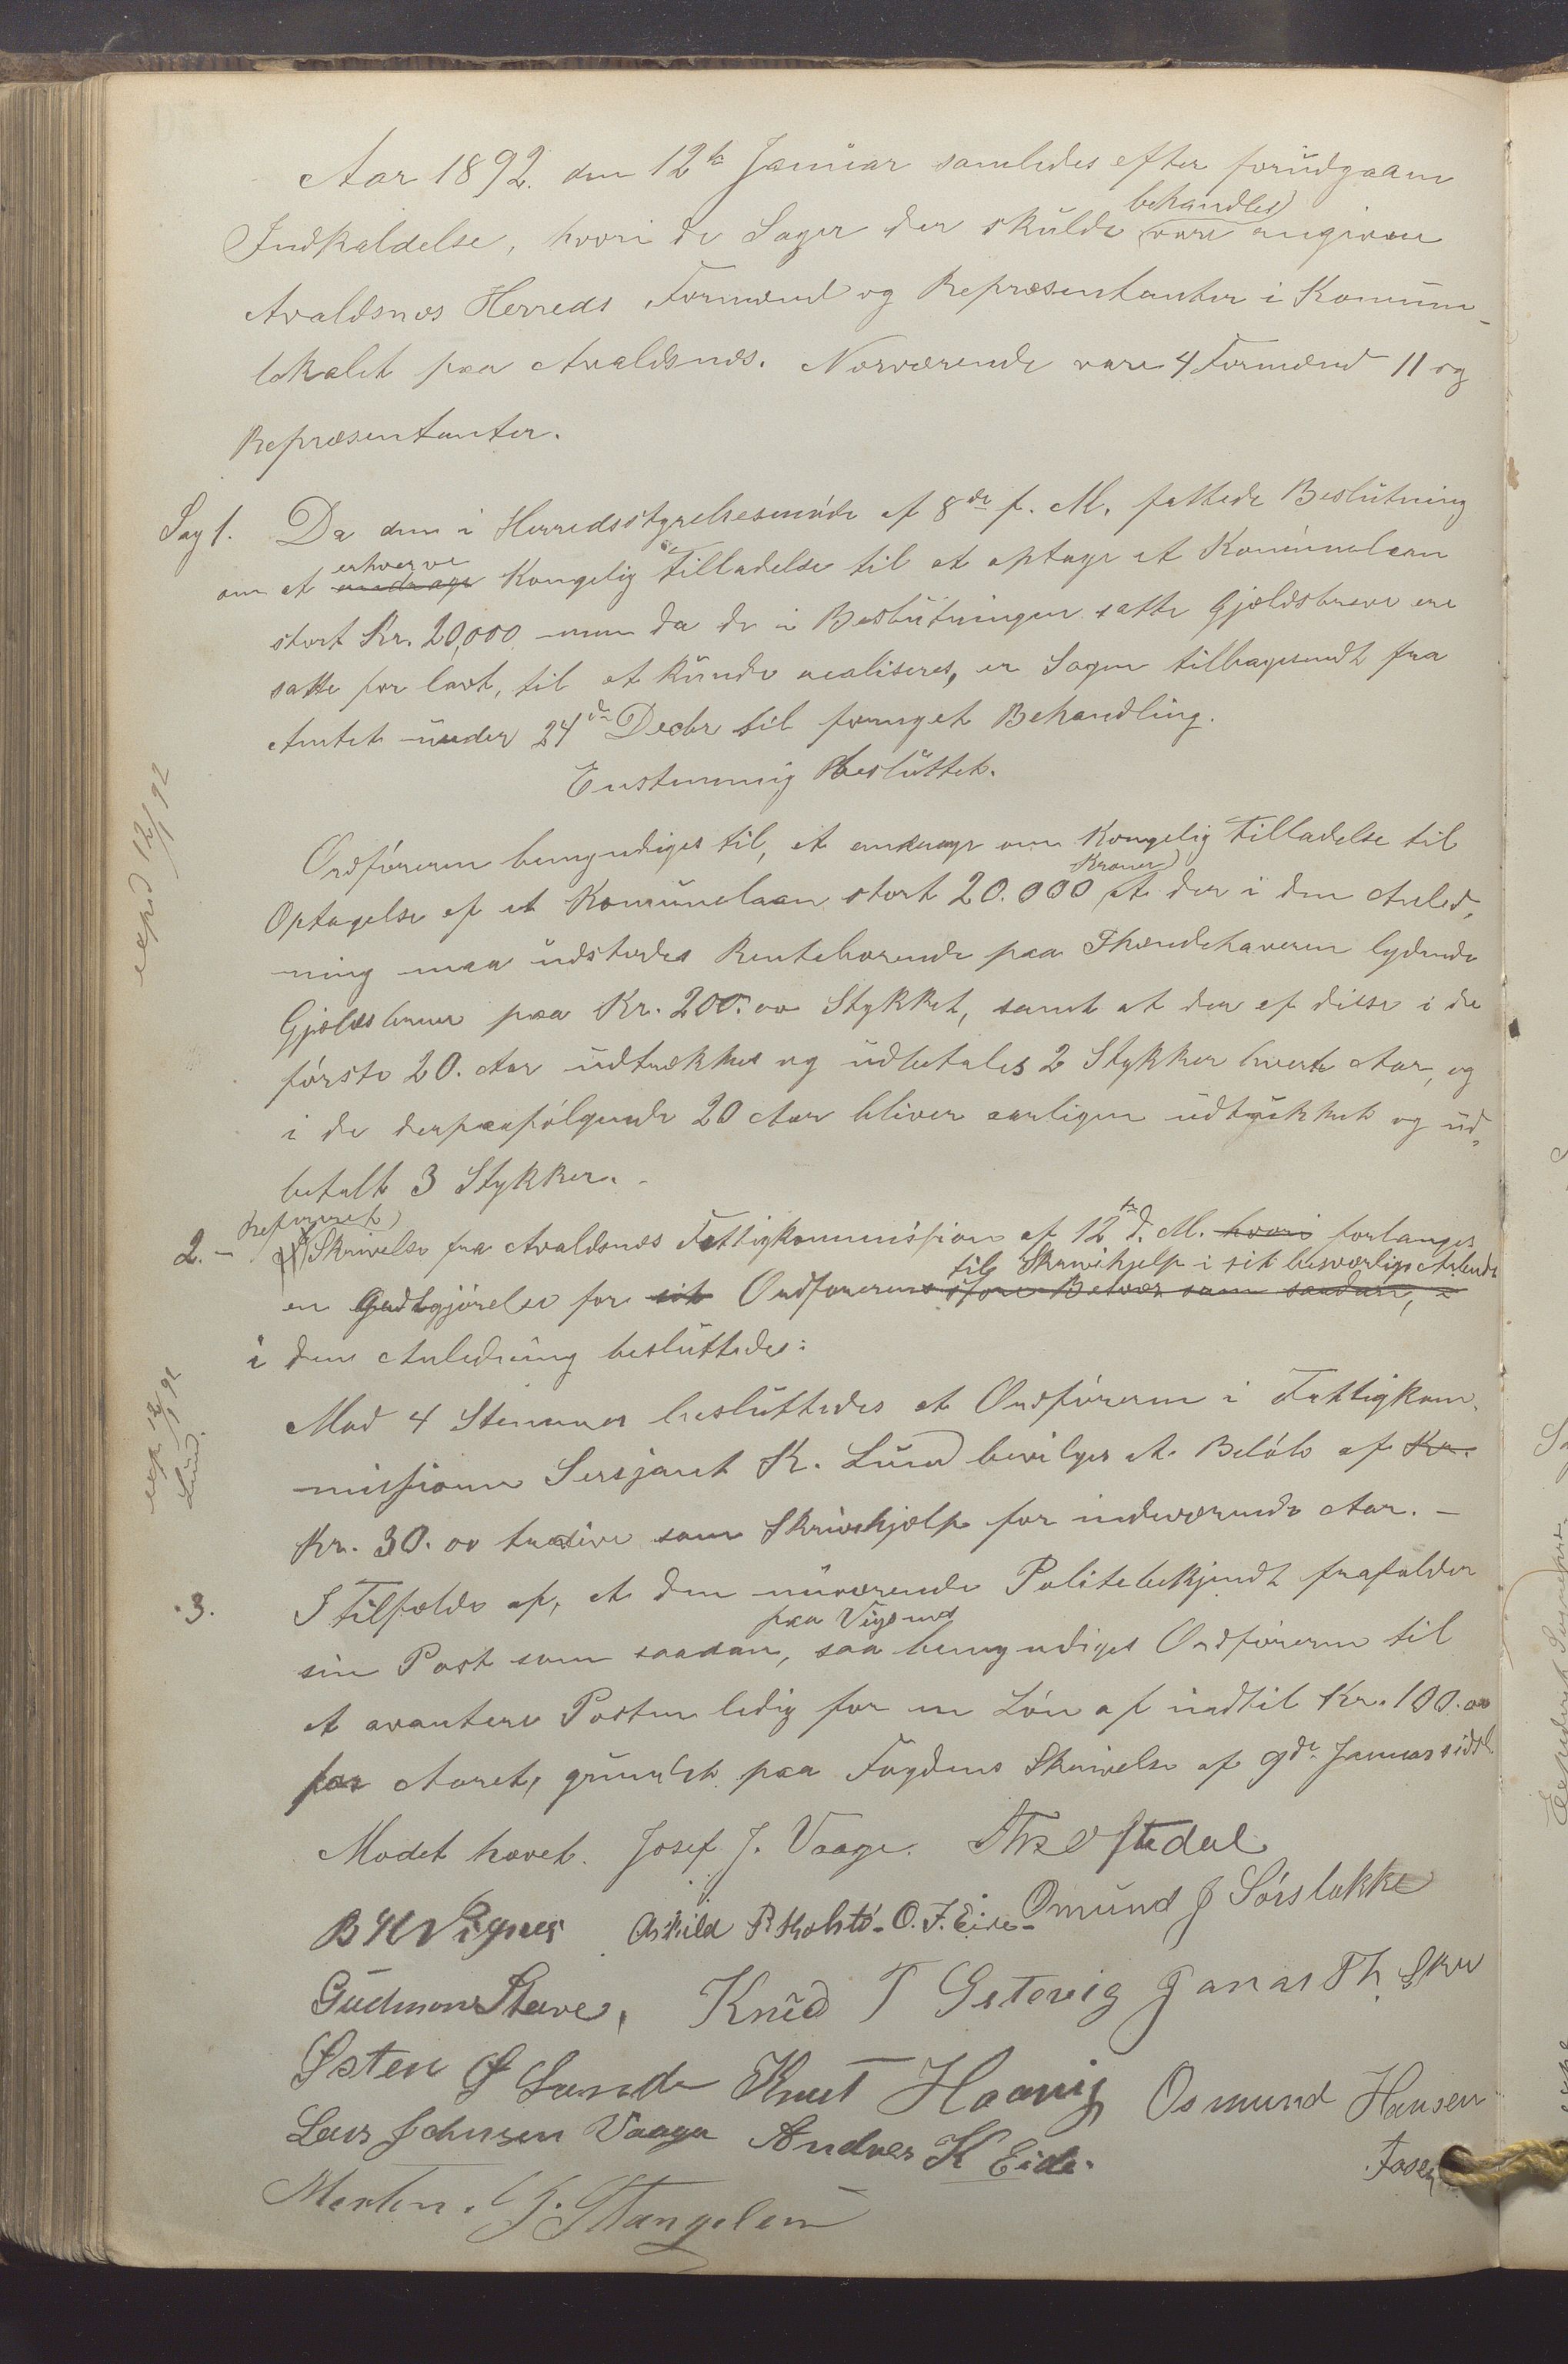 Aar 1892. den 12te Januar samledes efter forudgaaen
Indkaldelse, hvori de Sager der skulde behandles vare angivne
Avaldsnes Herreds Formænd og Repræsentanter i Komune-
lokalet paa Avaldsnes. Nærværende vare 4 Formænd 11 og
Repræsentanter.
Sag 1. Da den i Herredsstyrelsesmøde af 8de f. M. fattede Beslutning
om at erhverve andrage Kongelig Tilladelse til at optage et Komunelaan
stort Kr. 20,000 men da de i Beslutningen satte Gjældsbreve ere
satte for lavt, til at kunde realiseres, er Sagen tilbagesendt fra
Amtet under 24de Decbr til fornyet Behandling.
Enstemmig Besluttet.
exped 12/1 92
Ordføreren bemyndiges til, at andrage om Kongelig Tilladelse til
Optagelse af et Komunelaan stort 20.000 Kroner at der i den Anled-
ning maa udstedes Rentebærende paa Ihændehaveren lydende
Gjældsbreve paa Kr. 200.00 Stykket, samt at der af disse i de
første 20. Aar udtrækkes og udbetales 2 Stykker hvert Aar, og
i de derpaafølgende 20 Aar bliver aarligen udtrukket og ud-
betalt 3 Stykker.
2. - Refereret Skrivelse fra Avaldsnes Fattigkommission af 12te d. M. hvori forlanges
en Godtgjørelse for sit Ordførerens store Besvær som saadan, til Skrivehjelp i sit besværlige Arbeide
i den Anledning besluttedes:
exp. 12/1 92
Lund.
Mod 4 Stemmer besluttedes at Ordføreren i Fattigkom-
missionen Sersjant K. Lund bevilges et Beløb af Kr.
Kr. 30.00 tredive som Skrivehjælp for indeværende Aar. -
3. I Tilfælde af, at den nuværende Politebetjendt frafalder
sin Post som saadan, paa Vigsnes saa bemyndiges Ordføreren til
at avantere Posten ledig for en Løn af indtil Kr. 100.00
for Aaret, grundet paa Fogdens Skrivelse af 9de Januar sidstl.
Mødet hævet. Josef J. Vaage. Th Oftedal
B H Vignes Askild P. Kolstø. O. J. Eide. Omund J Sørstokke
Gudmon Stave, Knud T Gitevig Janas Th. Skre
Østen Ø Sunde Knut Haavig Osmund Hansen
Lars Johnsen Vaage Andres K Eide. Fosen
Morten. G. Stangeland